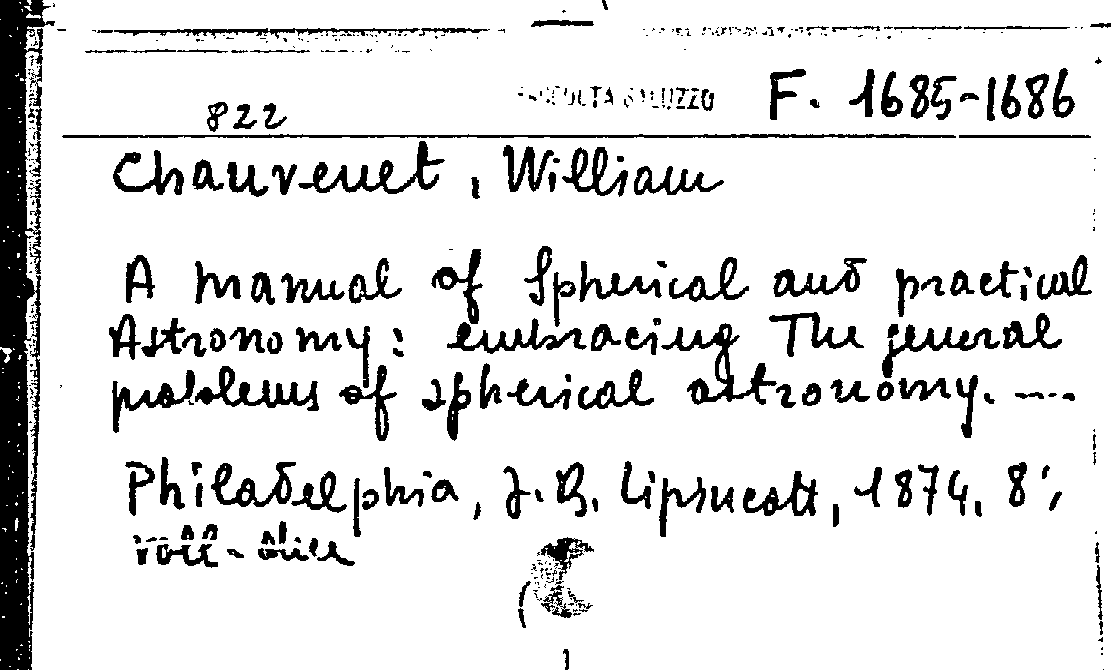 RACCOLTA SALUZZO F. 1685-1686
822
Chauvenet, William
A manual of Spherical and practical
Astronomy: embracing The general
problems of spherical astronomy. ....
Philadelphia, J.B. Lipsucott, 1874, 8',
1